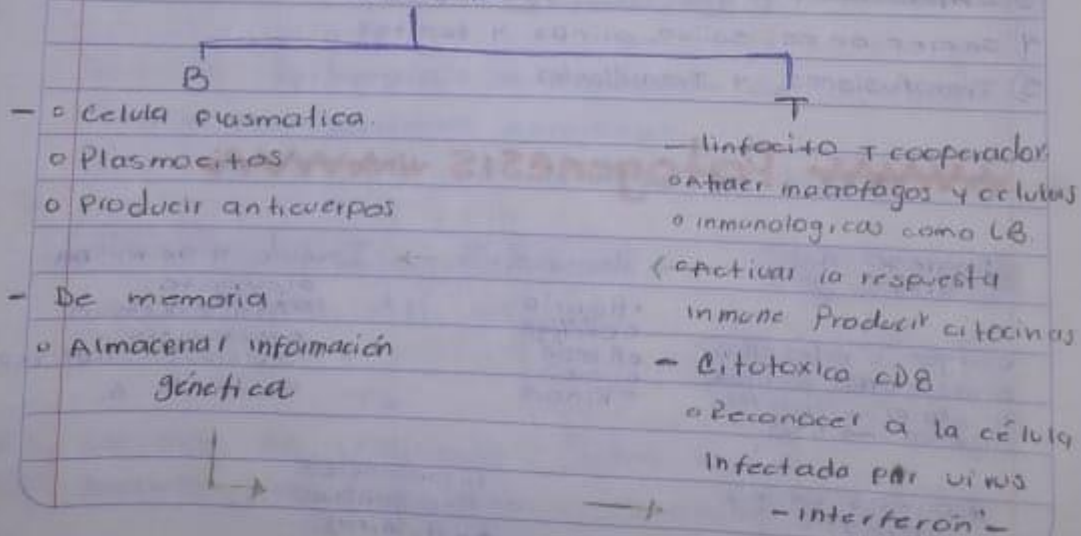 B
- o Celula plasmatica.
o Plasmocitos
o Producir anticuerpos
- De memoria
o Almacenar información
génetica
T
- linfocito T cooperador
o Atraer macrofagos y celulas
o inmunologicas como LB
Activar la respuesta
inmune Producir citocinas
- Citotoxica CD8
o Reconocer a la célula
infectada por virus
- interferon" -